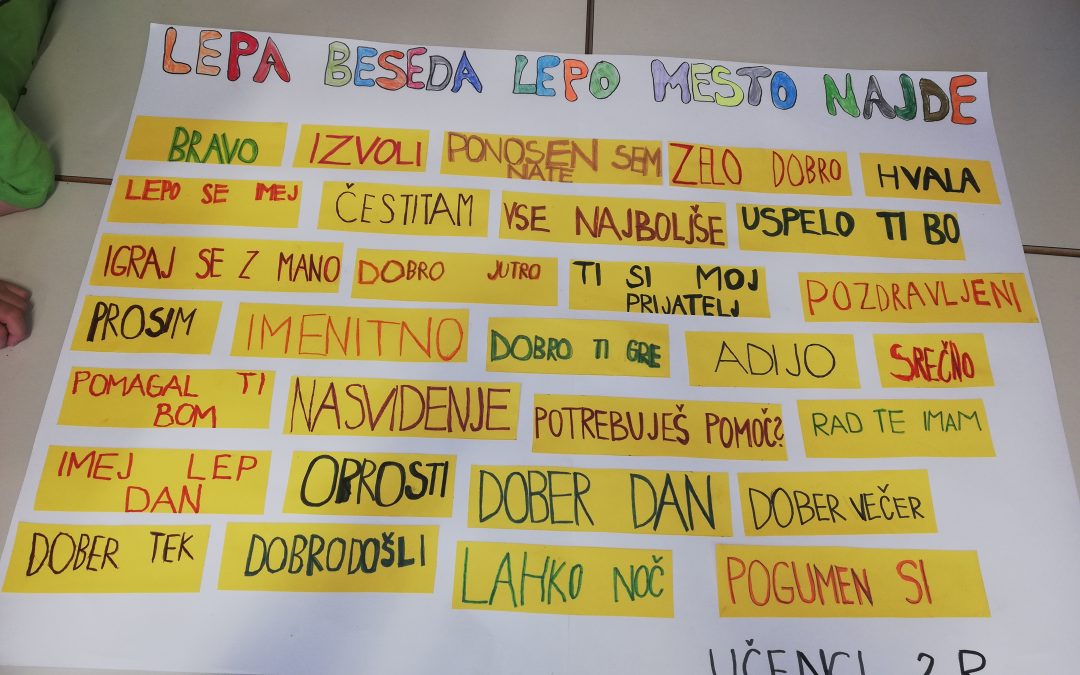 LEPA BESEDA LEPO MESTO NAJDE
BRAVO
IZVOLI
PONOSEN SEM
NATE
ZELO DOBRO
HVALA
LEPO SE IMEJ
ČESTITAM
VSE NAJBOLJŠE
USPELO TI BO
IGRAJ SE Z MANO
DOBRO JUTRO
TI SI MOJ
PRIJATELJ
POZDRAVLJENI
PROSIM
IMENITNO
DOBRO TI GRE
ADIJO
SREČNO
POMAGAL TI
BOM
NASVIDENJE
POTREBUJEŠ POMOČ?
RAD TE IMAM
IMEJ LEP
DAN
OPROSTI
DOBER DAN
DOBER VEČER
DOBER TEK
DOBRODOŠLI
LAHKO NOČ
POGUMEN SI
UČENCI